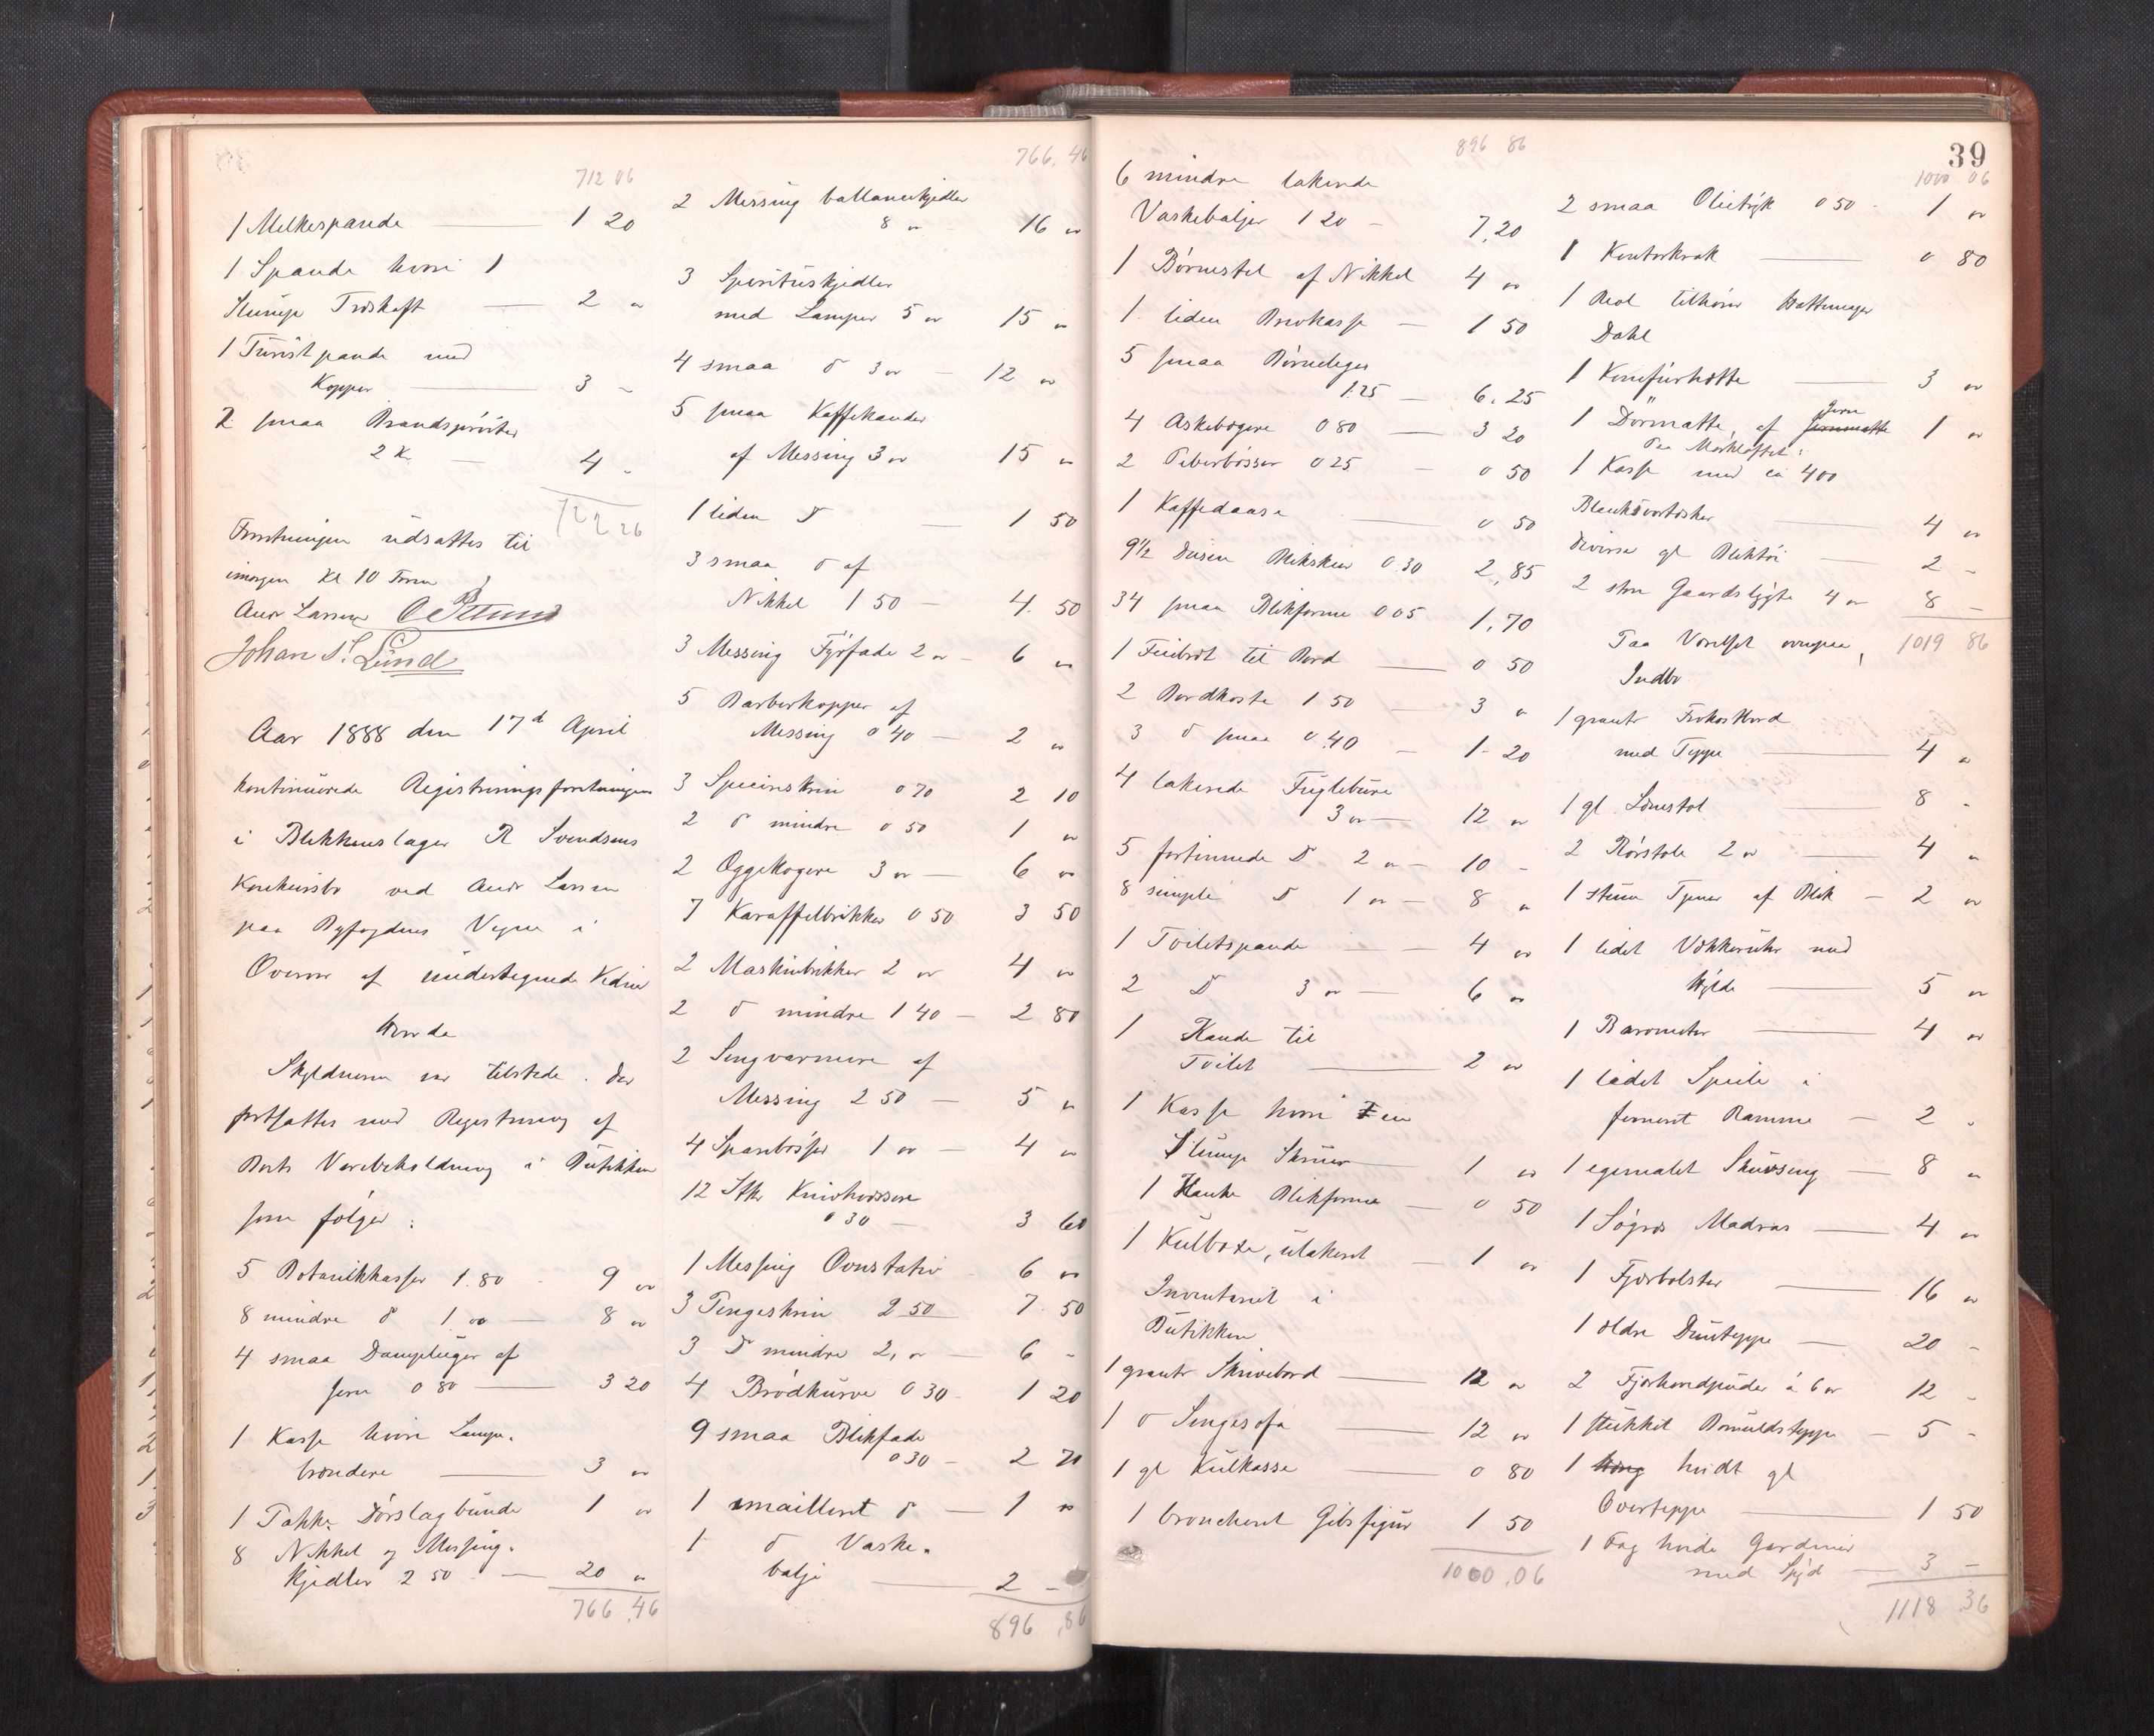 712 06
1 Melkespande — 1 20
1 Spande hvori 1
Stump Træskaft — 2 "
1 Turistpande med
Kopper — 3 "
2 smaa Brandsprøiter
2 Kr — 4 "
722 26
Forretningen udsattes til
imorgen Kl 10 Form
Andr Larsen
Johan S. Lund
Aar 1888 den 17d April
kontinuerede Registreringsforretningen
i Blikkenslager R Svendsens
Konkursbo ved Andr Larsen
paa Byfogdens Vegne i
Overvær af undertegnede Vidner
Hvorda
Skyldneren var tilstede. Der
fortsattes med Registrering af
Boets Varebeholdning i Butikken
som følger:
5 Botanikkasser 1.80 - 9 "
8 mindre do 1 00 — 8 "
4 smaa Dampluger af
jern 0 80 — 3 20
1 Kasse hvori Lampe-
brændere — 3 "
1 Pakke Dørslagbunde 1 "
8 Nikkel og Messing-
kjedler 2 50 — 20 "
766,46
766,46
2 Messing ballancekjedler
8 " 16 "
3 Spirituskjedler
med Lamper 5 " 15 "
4 smaa do 3 " — 12 "
5 smaa Kaffekander
af Messing 3 " 15 "
1 liden do 1 50
3 smaa do af
Nikkel 1 50 — 4. 50
3 Messing Fyrfade 2 " — 6 "
5 Barberkopper af
Messing 0 40 — 2 "
3 Speciskrin 0 70 2 10
2 do mindre 0 50 1 "
2 Æggekogere 3 " — 6 "
7 Karaffelbrikker 0 50 3 50
2 Maskinbrikker 2 " 4 "
2 do mindre 1 40 — 2 80
2 Sengvarmere af
Messing 2 50 — 5 "
4 Sparebøsser 1 " — 4 "
12 Stkr Knivhvæssere
0 30 — 3 60
1 Messing Ovnstativ 6 "
3 Pengeskrin 2 50 7. 50
3 do mindre 2, " — 6 -
4 Brødkurve 0 30 - 1 20
9 smaa Blikfade
0 30 — 2 70
1 emailleret do — 1 "
1 do Vaske-
balje — 2 -
896,86
896 86
6 mindre lakerede
Vaskebaljer 1 20 - 7,20
1 Børnestel af Nikkel 4 "
1 liden Brevkasse — 1 50
5 smaa Børneleger
1.25 — 6.25
4 Askebægere 0 80 — 3 20
2 Peberbøsser 0 25 - 0 50
1 Kaffedaase 0 50
9½ Dusin Blikskeer 0 30 2,85
34 smaa Blikforme 0 05 1,70
1 Feiebræt til Bord — 0 50
2 Bordkoste 1 50 — 3 "
3 do smaa 0.40 - 1- 20
4 lakerede Fuglebure
3 " — 12 "
5 fortinnede do 2 " — 10 -
8 simple do 1 " — 8 "
1 Toiletspande — 4 "
2 do 3 " — 6 "
1 Kande til
Toilet — 2 "
1 Kasse hvori en
Slump Skruer 1 "
1 Hanke Blikforme — 0 50
1 Kulboxe, ulakeret — 1 "
Inventariet i
Butikken
1 grantr Skrivebord — 12 "
1 do Sengesofa — 12 "
1 gl Kulkasse — 0 80
1 broncheret Gibsfigur 1 50
1000,06
39
1000 06
2 smaa Olietryk 0 50 - 1 "
1 Kontorkrak — 0 80
1 Reol tilhører
Dahl
1 Komfurhætte — 3 "
1 Dørmatte, af Jern 1 "
Paa Mørkeloftet:
1 Kasse med ca 400
Blanksværtæsker — 4 "
Diverse gl Bliktøi — 2 -
2 store Gaardslygte 4 " 8 -
1019 86
Paa Værelset ovenpaa,
Indbo
1 grantr Frokostbord
med Teppe — 4 "
1 gl Lænestol — 8 -
2 Rørstole 2 " — 4 "
1 stuer Tiener af Blik — 2 "
1 lidet Vækkeruhr med
Hylde — 5 "
1 Barometer — 4 "
1 lidet Speile i
ferneret Ramme — 2 "
1 egemalet Skuvseng — 8 "
1 Søgræs Madras — 4 "
1 Fjærbolster — 16 "
1 ældre Dunteppe — 20 -
2 Fjærhovedpuder á 6 " 12 -
1 stukket Bomuldsteppe — 5 -
1 hvidt gl
Overteppe — 1 50
1 Fag hvide Gardiner
med Spyd — 3 -
1118 36